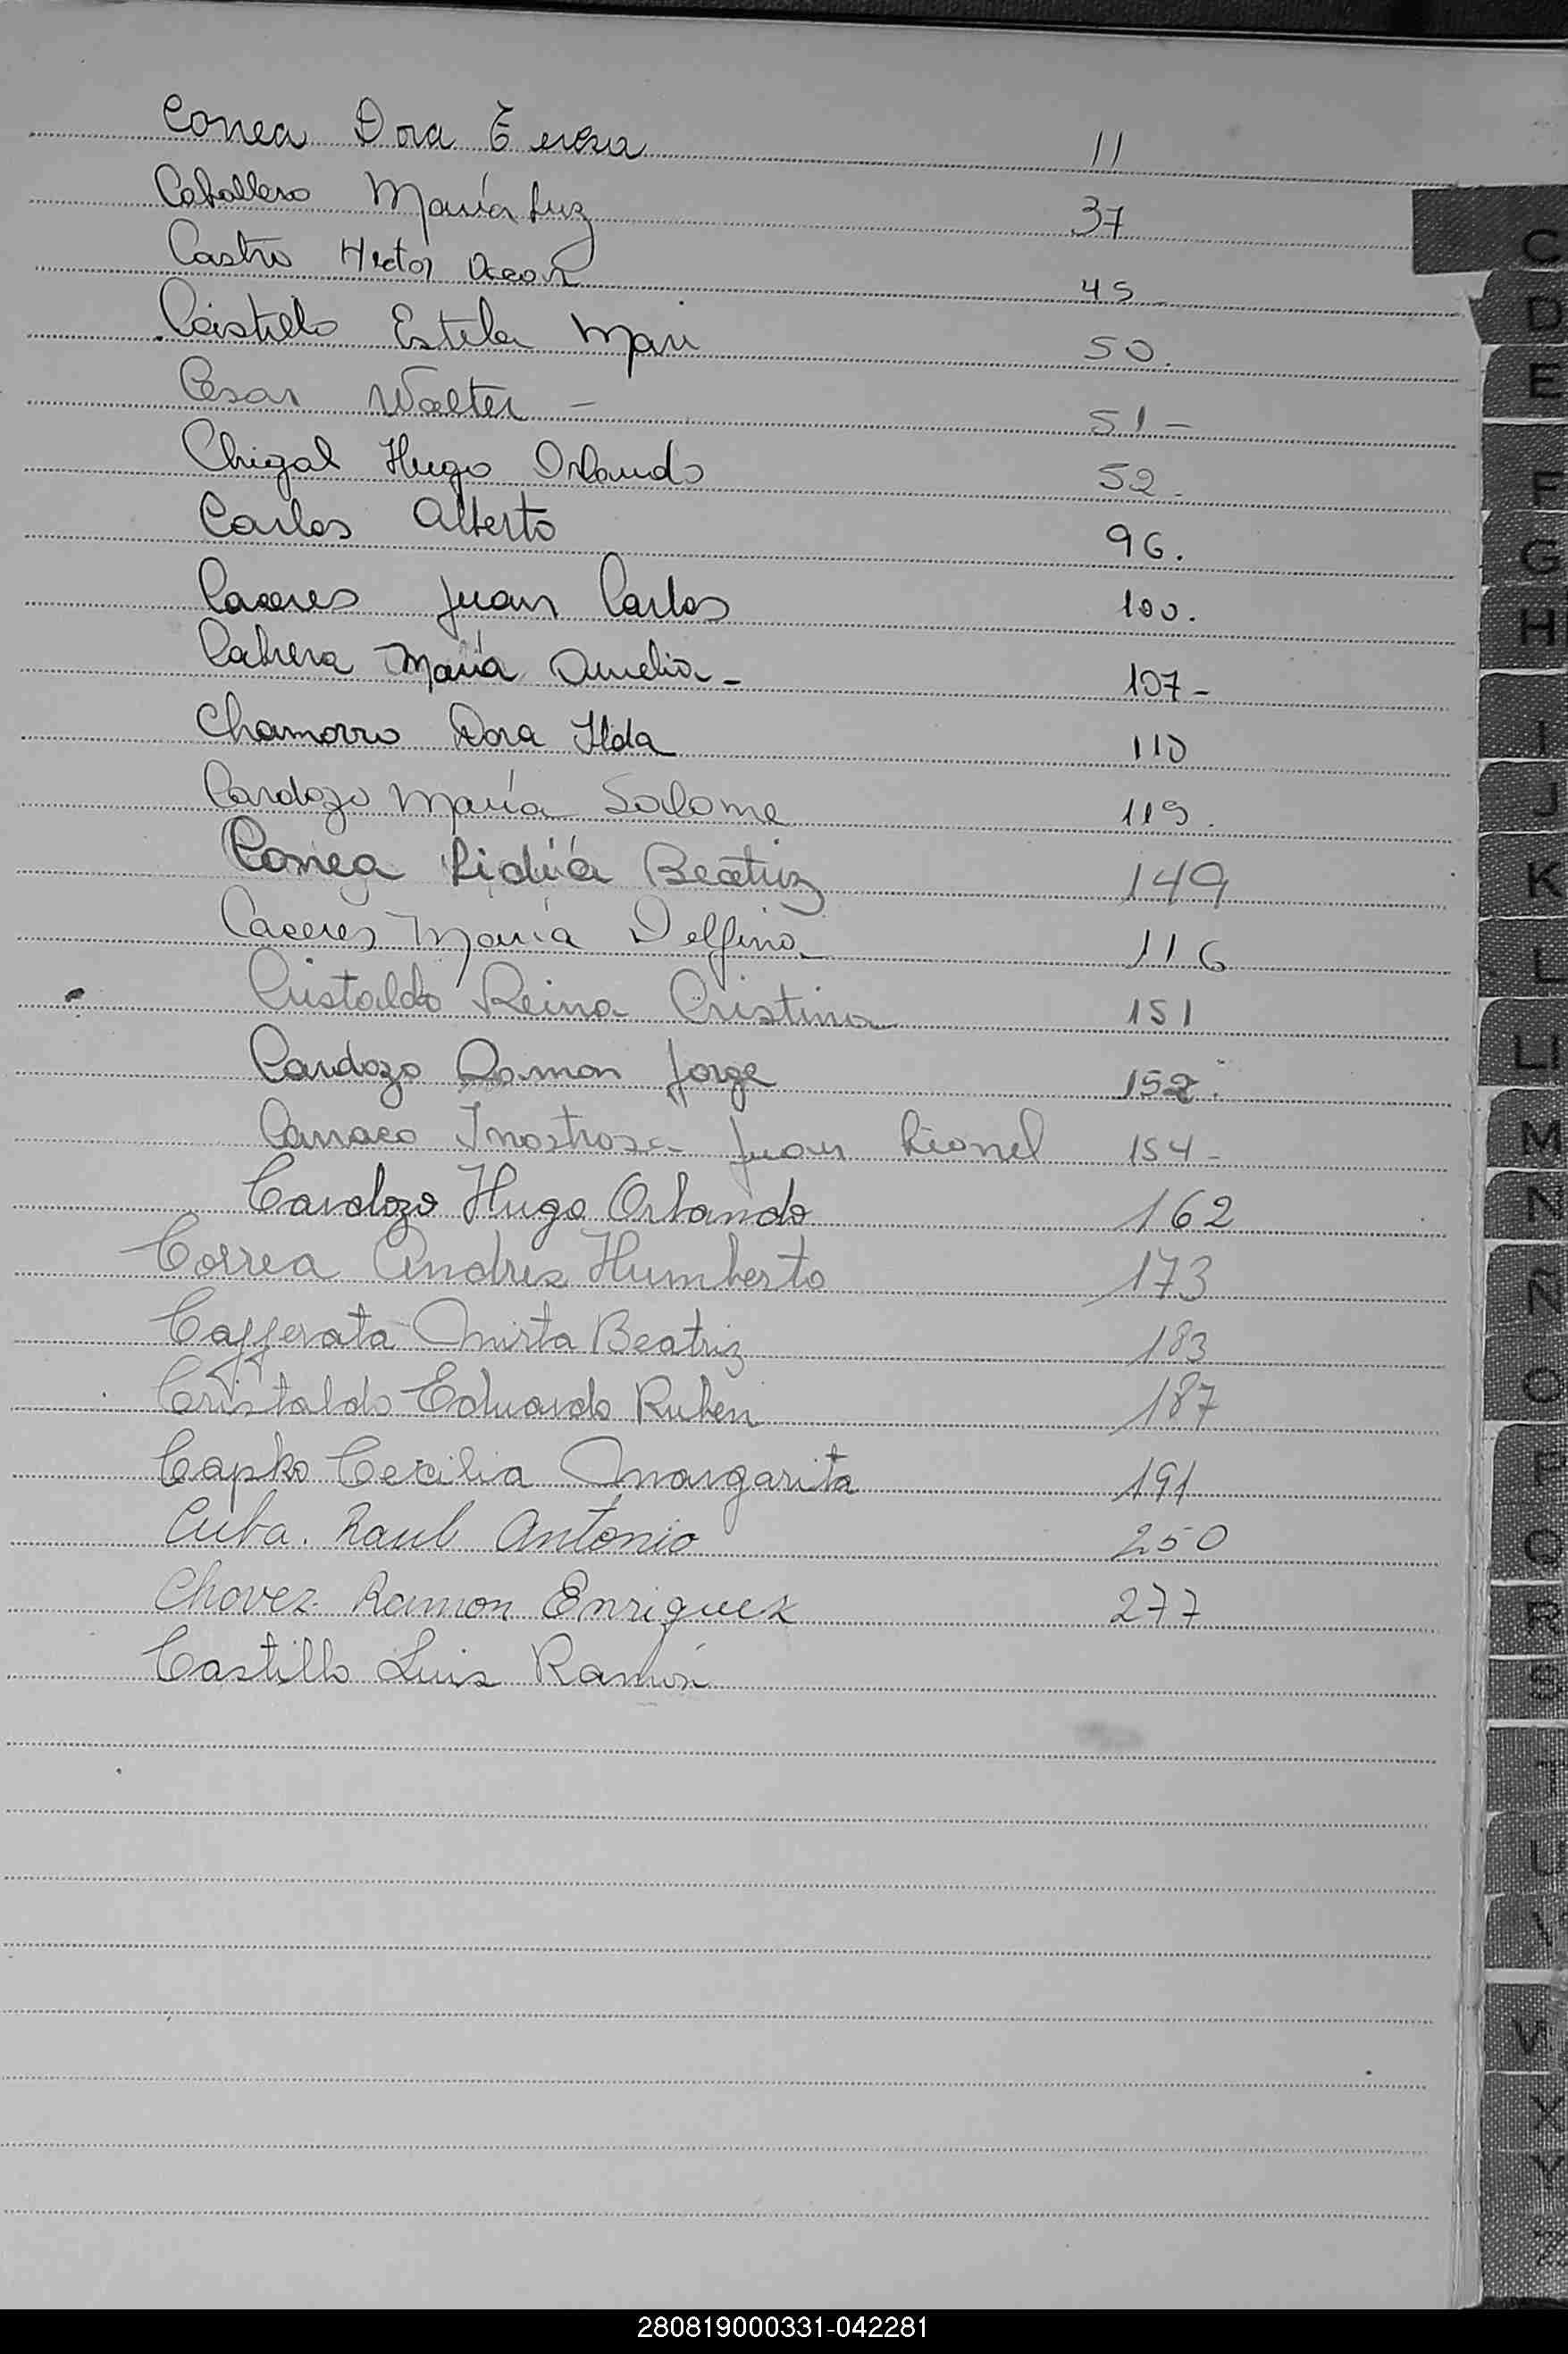 Correa Dora Teresa 11
Caballero María Luz 37
Castro Hector Oscar 45 -
Castillo Estela Mari 50.
Cesar Walter - 51 -
Chigal Hugo Orlando 52 -
Carlos Alberto 96.
Caceres Juan Carlos 100.
Cabrera María Amelia - 107 -
Chamorro Dora Ilda 110
Cardozo María Salome 119.
Correa Lidia Beatriz 149
Caceres María Delfina 116
Cristaldo Reina Cristina 151
Cardozo Ramon Jorge 152.
Carraco Inostrosa Juan Lionel 154 -
Cardozo Hugo Orlando 162
Correa Andres Humberto 173
Cafferata Mirta Beatriz 183
Cristaldo Eduardo Ruben 187
Capko Cecilia Margarita 191
Cuba. Raul Antonio 250
Chavez Ramon Enriquez 277
Castillo Luis Ramón
C
D
E
F
G
H
I
J
K
L
LL
M
N
Ñ
O
P
Q
R
S
T
U
V
W
X
Y
Z
280819000331-042281